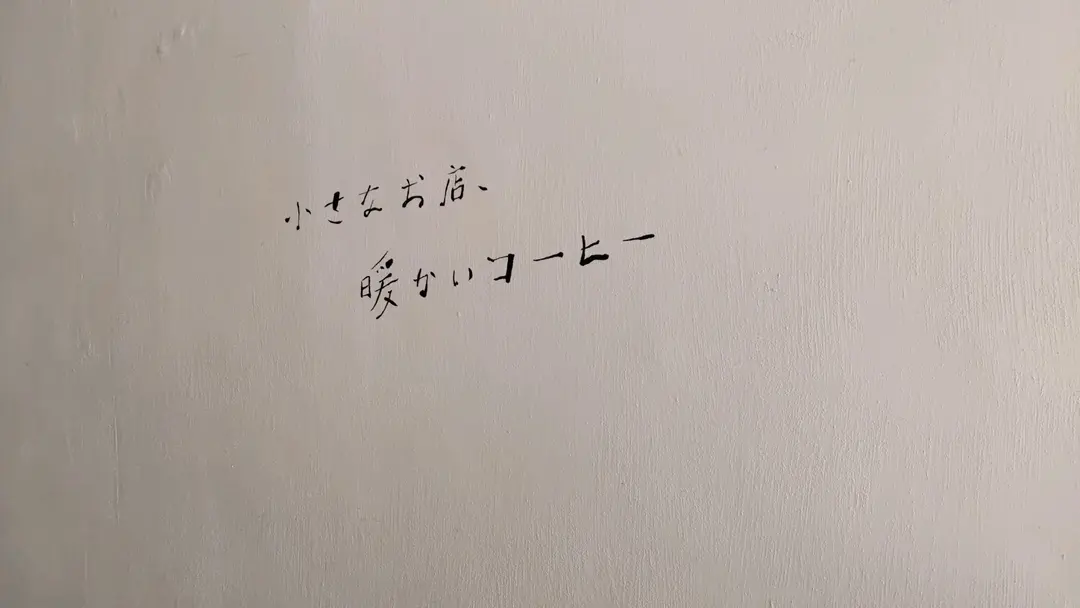 小さなお店、
暖かいコーヒー